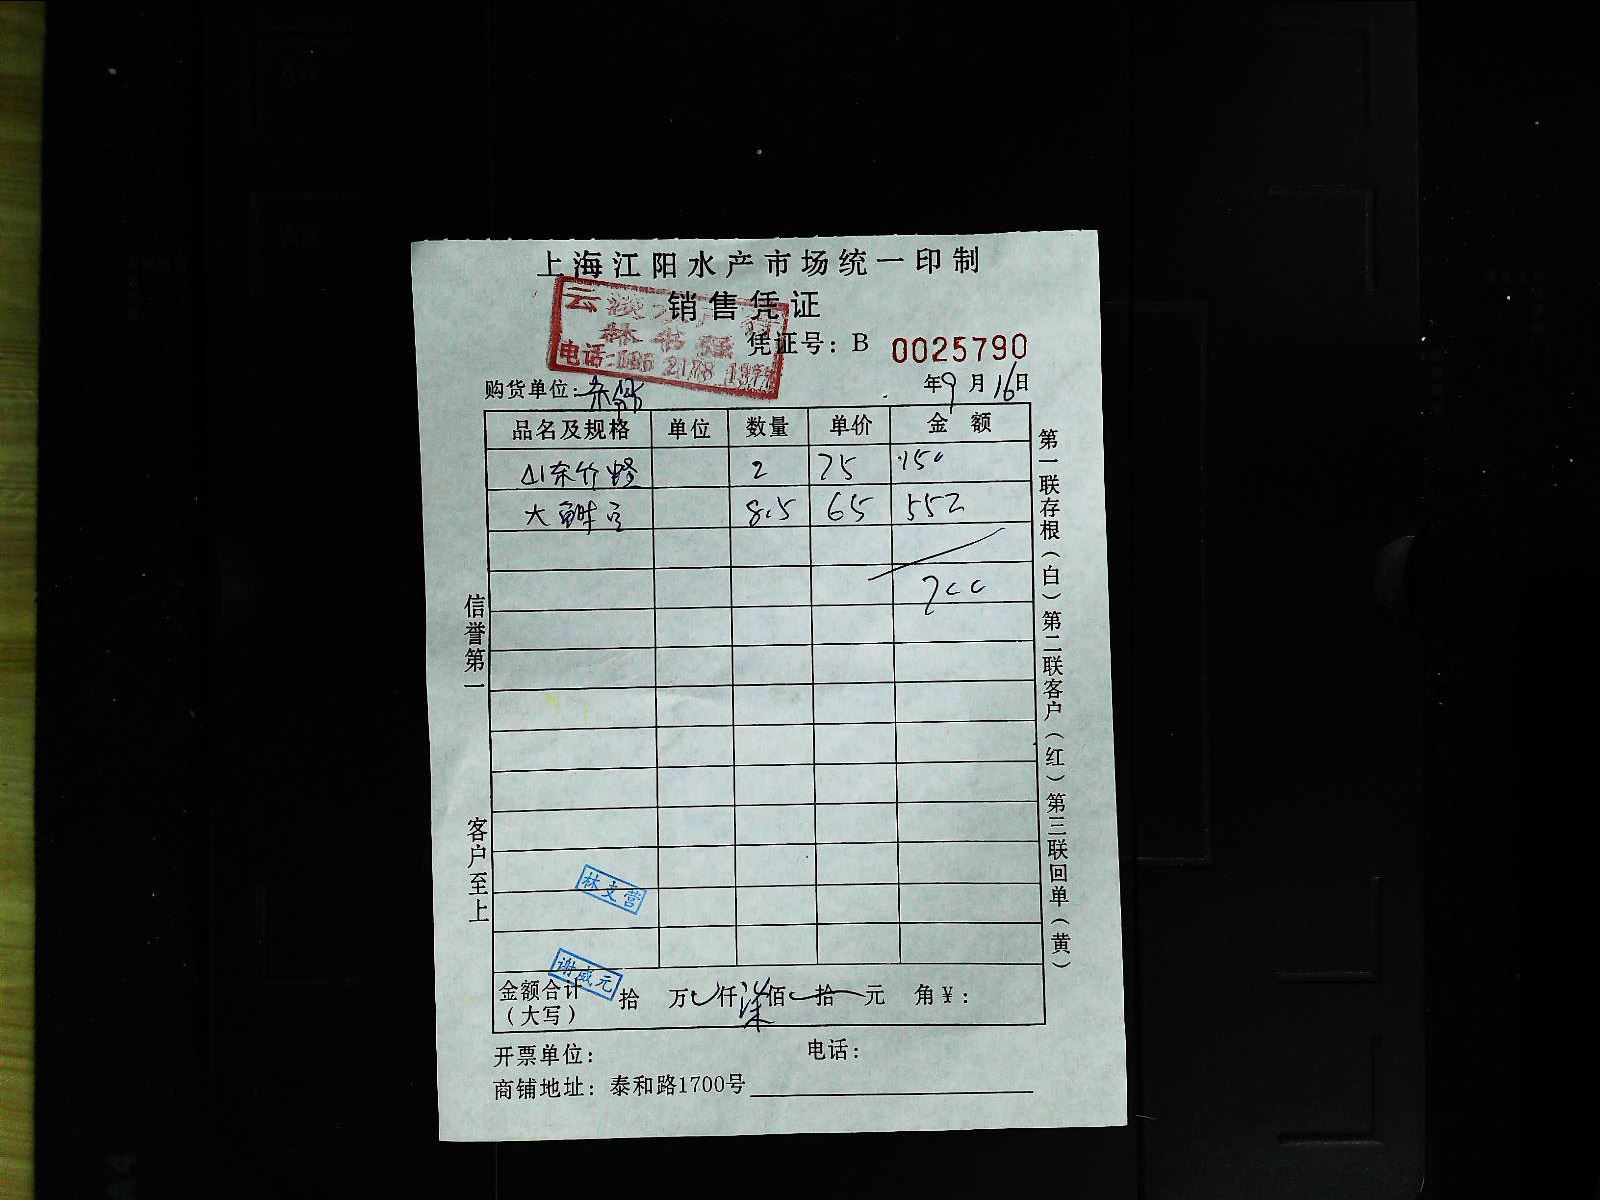 上海江阳水产市场统一印制
销售凭证
凭证号：B 0025790
购货单位：
年9月16日
品名及规格 单位 数量 单价 金额
山东竹蛏 2 75 150
大鲜 8.5 65 552
700
信誉第一
客户至上
第一联存根（白）第二联客户（红）第三联回单（黄）
林支营
谢威元
金额合计（大写） 拾 万 仟 柒 佰 拾 元 角 ¥：
开票单位： 电话：
商铺地址：泰和路1700号